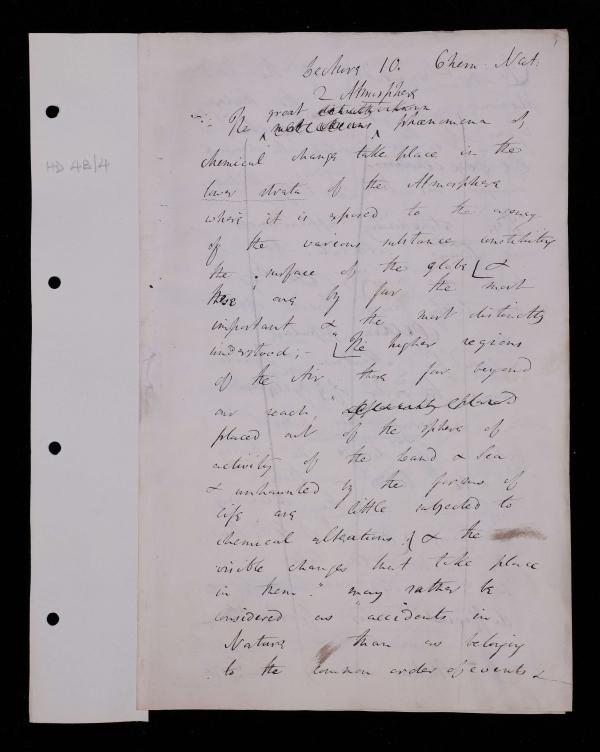 Lecture 10. Chem. Nat:
2 Atmosphere
great
The phœnomena of
chemical change take place in the
lower strata of the Atmosphere
where it is exposed to the agency
of the various substances constituting
the surface of the globe &
these are by far the most
important & the most distinctly
understood; - The higher regions
of the Air those far beyond
our reach, placed
placed out of the sphere of
activity of the Land & Sea
& unhaunted by the forms of
life are little subjected to
chemical alterations, & the
visible changes that take place
in them." may rather be
considered as "accidents in
Nature than as belonging
to the common order of events &
HD 4B/4